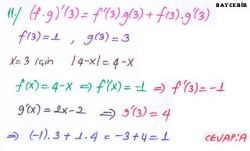 BAYCEBİR
11/ (f.g)'(3) = f'(3).g(3) + f(3).g'(3)
f(3)=1 , g(3)=3
x=3 için |4-x|=4-x
f(x)=4-x ⇒ f'(x)=-1 ⇒ f'(3)=-1
g'(x)=2x-2 ⇒ g'(3)=4
⇒ (-1).3 + 1.4 = -3+4=1 CEVAP:A